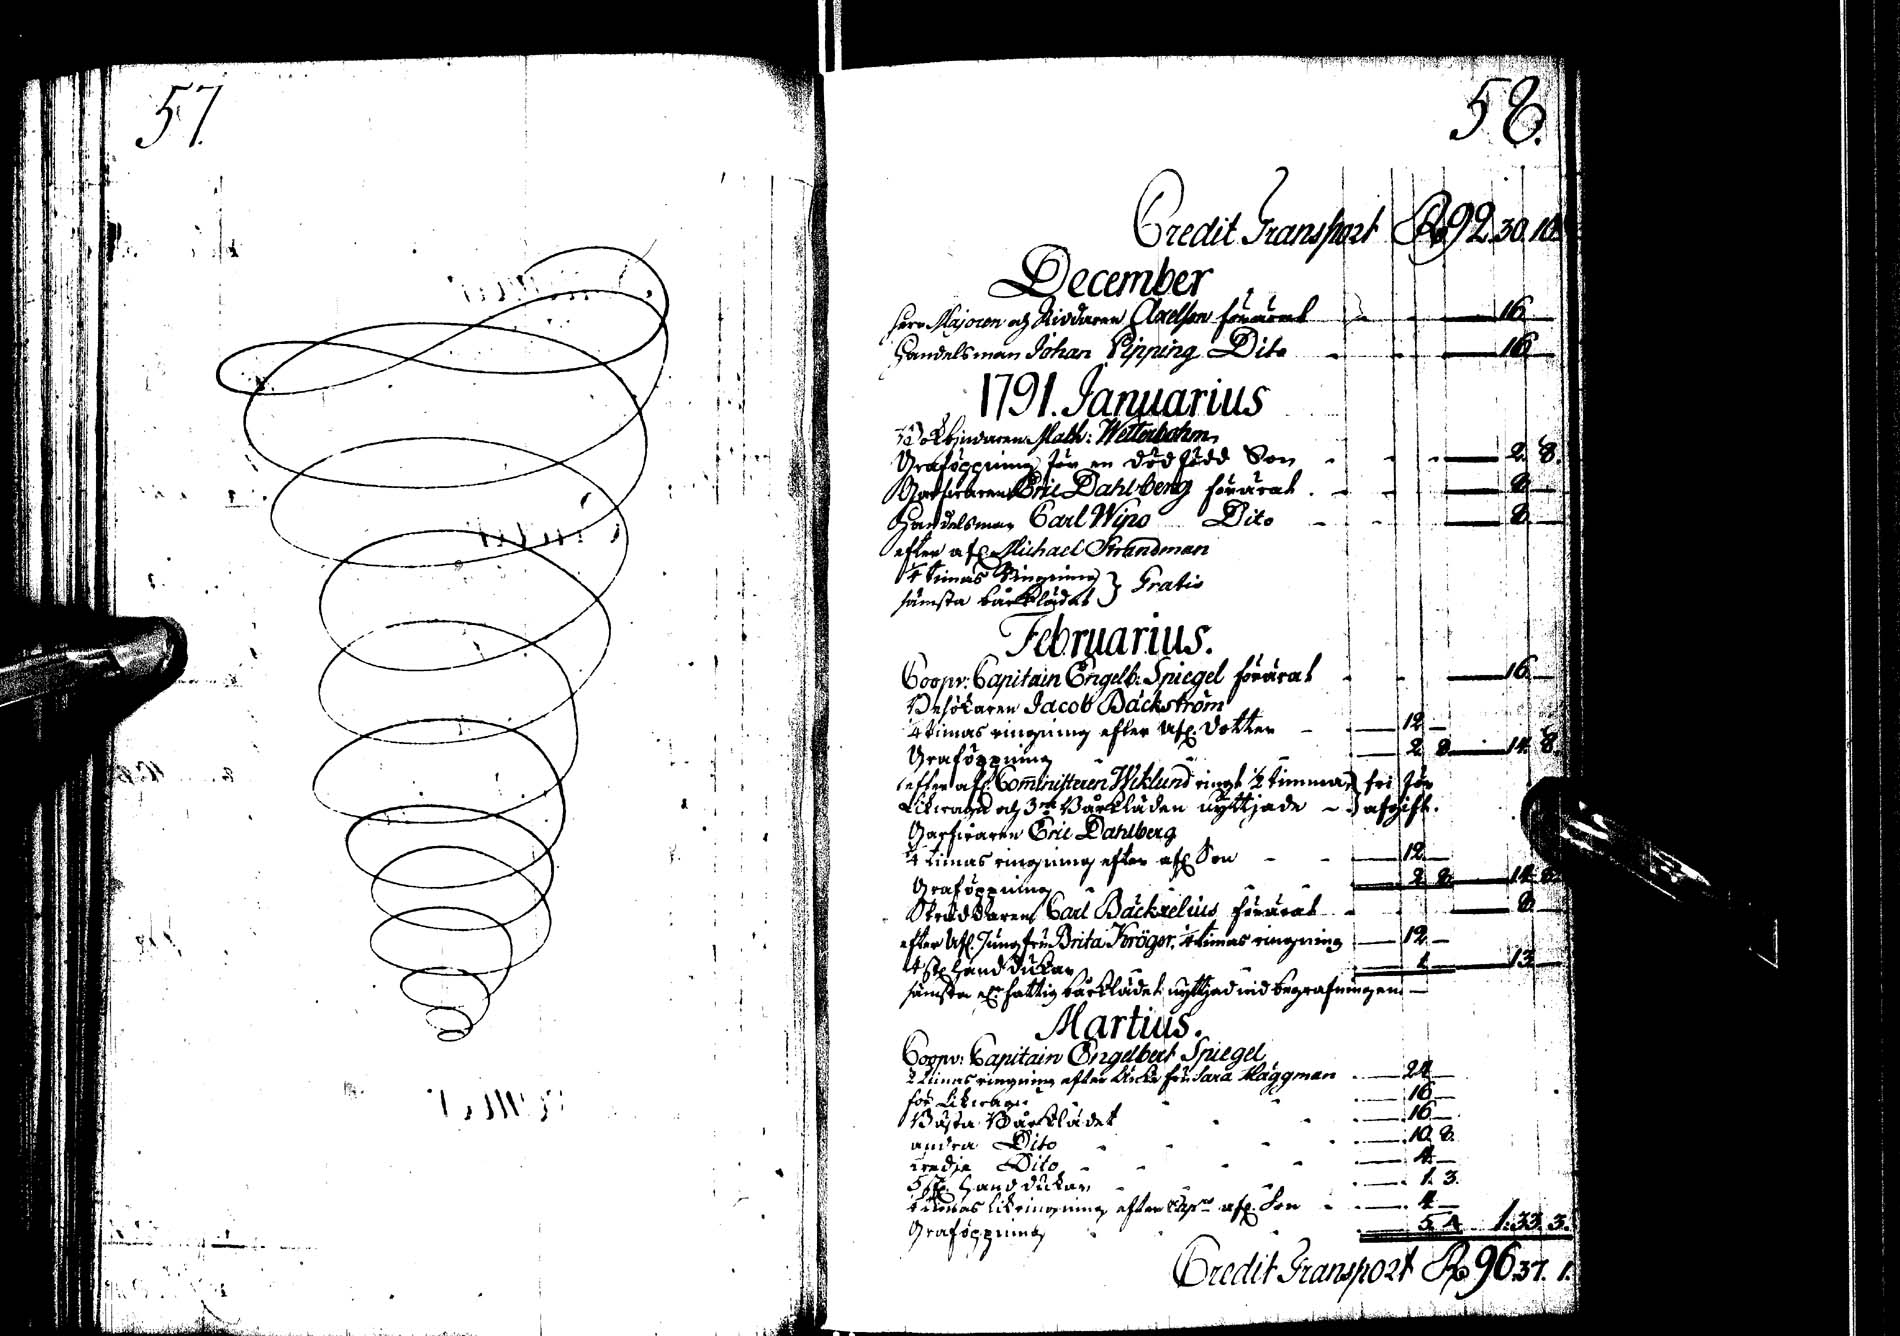 57.
58.
Credit Transport Rd 92.30.10.
December
Herr Majoren och Riddaren Axelson förärat 16
Handelsman Johan Pipping Dito 16
1791. Januarius
Bokbindaren Math: Wetterbohm
Graföppning för en dödfödd Son 2. 8.
Garfvaren Eric Dahlberg förärat 8
Handelsman Carl Wipo Dito 8
efter afl. Michael Strandman
1/4 timas Ringning } Gratis
sämsta bårklädet
Februarius.
Coopv: Capitain Engelb: Spiegel förärat 16
Besökaren Jacob Bäckström
1/4 timas ringning efter Afl. dotter 12
Graföppning 2 8 14 8.
efter afl. Comministeren Wiklund ringt 1/2 timma } fri för
Likvagn och 3ne Bårkläden nyttjade afgift.
Garfvaren Eric Dahlberg
1/4 timas ringning efter afl. Son 12
Graföppning 2 8 14 8
Skräddaren Carl Bäckzelius förärat 8
efter Afl. Jungfru Brita Kröger, 1/4 timas ringning 12
4 st. handdukar 1 13
sämsta eller fattig bårklädet nyttjad vid begrafningen
Martius.
Coopv: Capitain Engelbert Spiegel
1/2 timas ringning efter Enke fru Sara Häggman 24
för Likvagn 16
Bästa Bårklädet 16
andra Dito 10. 8.
tredje Dito 4
5 st. Handdukar 1. 3.
1/4 timas likringning efter Cap:ns afl. Son 4
Graföppning 5 4 1.33.3.
Credit Transport Rd 96.37.1.